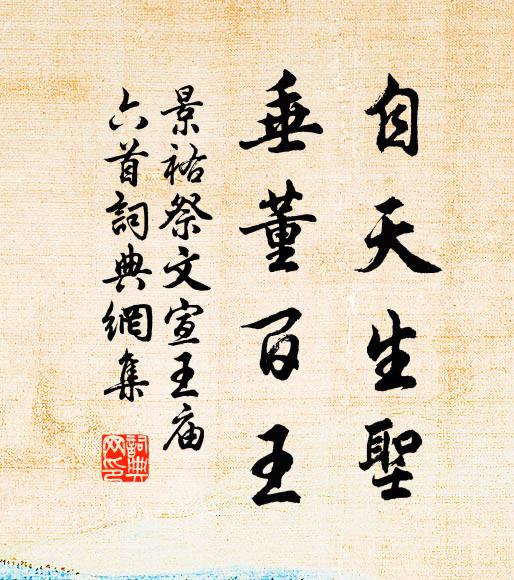 自天生聖
垂董百王
景祐祭文宣王庙
六首詞典網集
詞典
网印